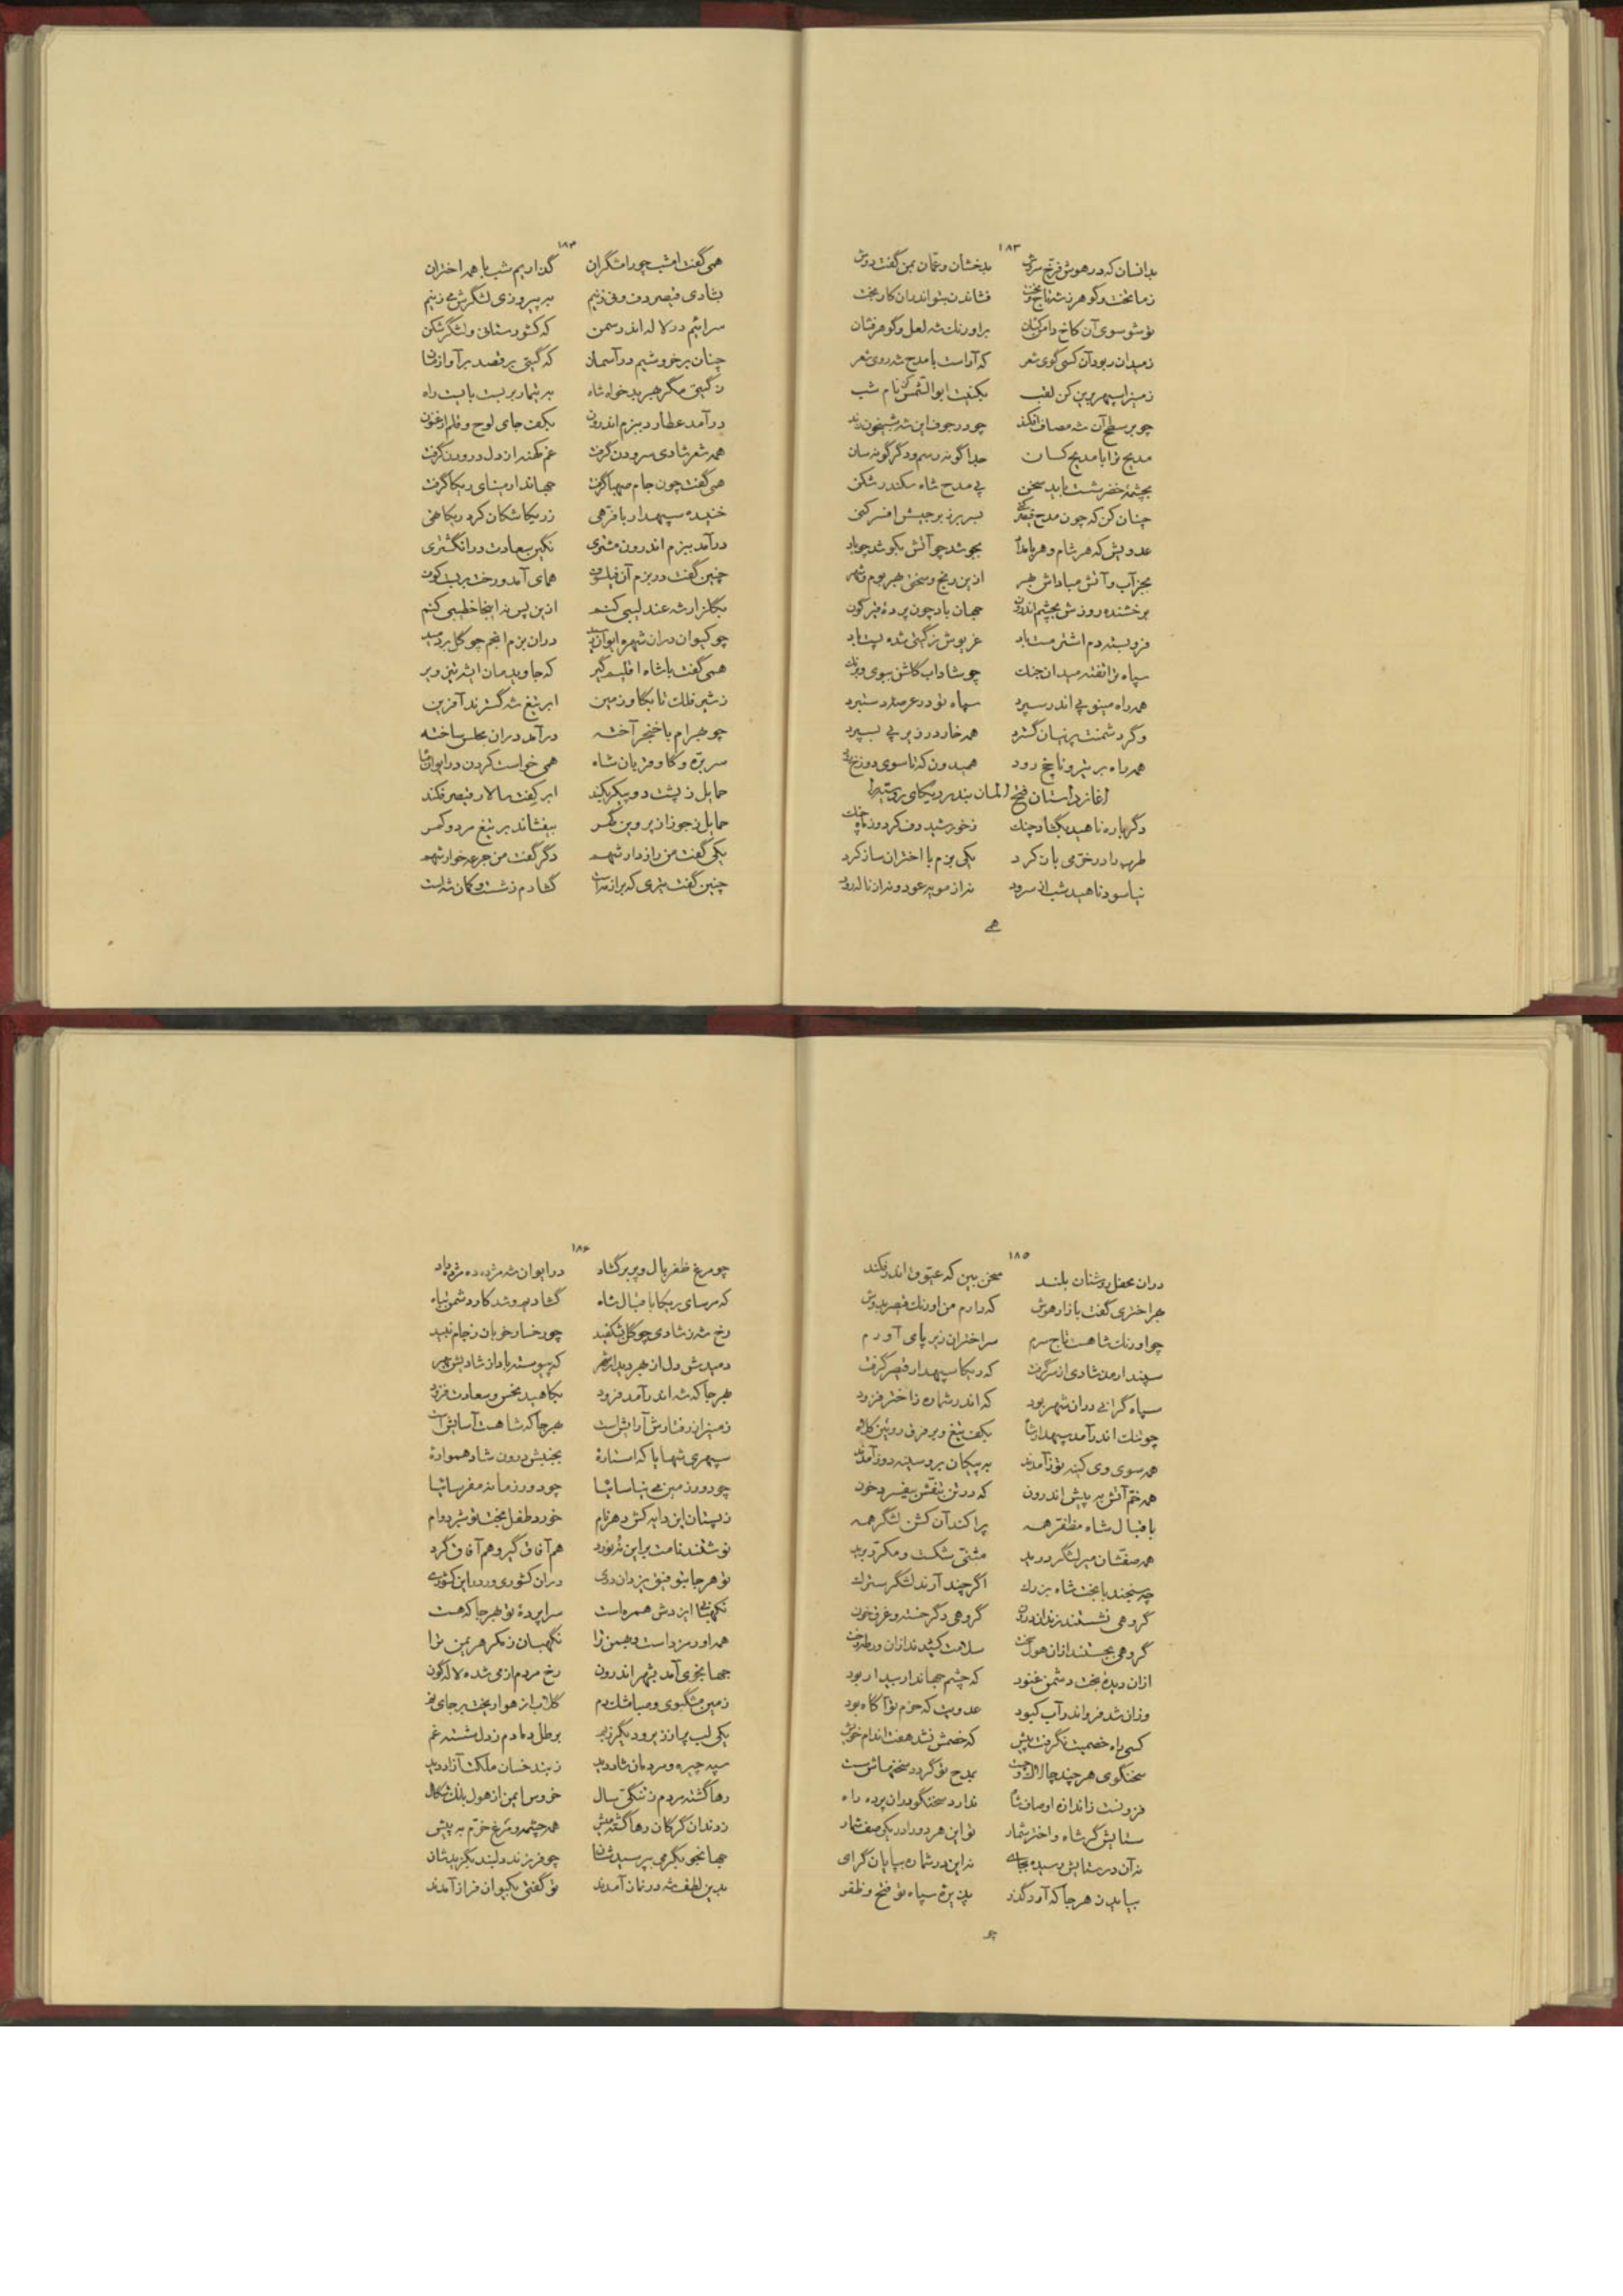 ۱۸۳
بدانسان که در هوش فرخ سروش بدخشان و عمان بمن گفت دوش
تو شو سوی آن کاخ دامن کشان بر اورنک شه لعل و گوهر فشان
زمیدان ربود آن کسی گوی شعر که آراست با مدح شه روی شعر
چو بر سطح آن شه مصاف افکند چو در جوف این شه شبیخون زند
مدیح ترا با مدیح کسان جدا گونه رسم و دگرگونه سان
بچشمهٔ خضر شست باید سخن پی مدح شاه سکندر شکن
چنان کن که چون مدح
عدویش که هر شام و هر بامداد بجوشد چو آتش بکوشد چو باد
بجز آب و آتش مباداش بهر ازین رنج و سختی بهر بوم و شهر
درخشنده روزش بچشم اندرون جهان باد چون پردهٔ قیرگون
فرو بسته دم اشتر مست باد غریوش ز گیتی شده پست باد
سپاه ترا تفته میدان جنک چو شاداب گلشن ببوی و برنک
همه راه مینو پی اندر سپرد سپاه تو در عرصهٔ دستبرد
وگر دشمنت پرنیان گسترد همه خار در زیر پی بسپرد
همه راه بر نشتر و تا یخ رود همیدون که تا سوی دوزخ رود
آغاز داستان فتح المان بند
دگرباره ناهید بگشاد چنک ز خورشید دف کرد وز ماه چنک
طرب را در خرمی باز کرد یکی بزم با اختران ساز کرد
نیاسود ناهید شب از سرود نه از مویه عود و نه از ناله رود
همی
۱۸۴
همی گفت امشب چو رامشگران گذاریم شب با همه اختران
بشادی قیصر دف و نی زنیم به پیروزی لشگرش می زنیم
سرائیم در لاله اندر سمن که کشور ستان و لشگر شکن
چنان برخروشیم در آسمان که گیتی برقصد بر آواز ما
ز گیتی مگر بهر بدخواه شاه به تیمار بر بست بایست راه
درآمد عطارد ببزم اندرون بکف جای لوح و قلم ارغنون
همه شعر شادی سرودن گرفت غم کهنه از دل درودن گرفت
همی گفت چون جام صهبا گرفت جهاندار مینای ریکا گرفت
خدیده سپهدار با فرهی ز ریکا شکان کرد ریکا تهی
درآمد ببزم اندرون مشتری نگین سعادت در انگشتری
چنین گفت در بزم آن فیلسوف همای آمد و رخت بر بست کوف
بگلزار شه عندلیبی کنم ازین پس نه اینجا خطیبی کنم
چو کیوان در آن شهره ایوان رسید در آن بزم انجم چو گل بردمید
همی گفت با شاه اقلیم گیر که جاوید مان ای شه تیز ویر
ز شیر فلک تا بگاو زمین ابر تیغ شه گسترند آفرین
چو بهرام با خنجر آخته درآمد در آن مجلس ساخته
سر بره و گاو قربان شاه همی خواست کردن در ایوان شاه
حمایل ز پشت دو پیکر بکند ابر کفت سالار قیصر فکند
حمایل ز جوزا ز پروین گهر بیفشاند بر تیغ مرد و کمر
یکی گفت من رازدار شهم دگر گفت من جرعه خوار شهم
چنین گفت تیری که پران شدست گشادم ز شست و کمان شه است
۱۸۵
در آن محفل روشنان بلند سخن بین که عیوق اندر فکند
بهر اختری گفت بازار هوش که دارم من اورنک قیصر بدوش
چو اورنک شاهست تاج سرم سر اختران زیر پای آورم
سپندارمذ شادی از سر گرفت که ریکا سپهدار قیصر گرفت
سپاه گرانی در آن شهر بود که اندر شماره ز اختر فزود
چو تنک اندر آمد سپهدار شاه بکف تیغ و بر فرق روئین کلاه
همه سوی وی کینه توز آمدند به پیکان بر و سینه دوز آمدند
همه خم آتش به پیش اندرون که در تن بتفتش بیفسرد خون
باقبال شاه مظفر همه پراکند آن کشن لشگر همه
همه صفشان میر لشگر درید مثنی شکست و مکرر برید
چه سنجند با بخت شاه بزرک اگر چند آرند لشگر سترک
گروهی نشستند زندان درون گروهی دگر خسته و غرق خون
گروهی بجستند ازان هول سخت سلامت کشیدند ازان ورطه رخت
ازان دیدهٔ بخت دشمن غنود که چشم جهاندار بیدار بود
وزان شد فرو اندر آب کبود عدویت که حزم تو آگاه بود
کسی راه خصمیت نگرفت پیش که خصمش نشد هفت اندام خویش
سخنگوی هر چند چالاک و چست بمدح تو گردد سخنهاش سست
فزونست ز اندازه اوصاف شاه ندارد سخنگو در آن پرده راه
ستایش گر شاه و اختر شمار تو این هر دو را در یکی صف شمار
نه آن در ستایش رسیده بجای نه این در شماره بپایان گرای
بیابد ن هر جا که آرد گذر پذیره سپاه تو فتح و ظفر
چو
۱۸۶
چو مرغ ظفر بال و پر برگشاد در ایوان شه مژده ده مژده داد
که مرسای ریکا باقبال شاه گشاده شد کار دشمن تباه
رخ شه ز شادی چو گل شکفید چو رخسار خوبان ز جام نبید
دمیدش دل از بهر دیدار شهر که پیوسته باد از شادیش بهر
بهر جا که شه اندر آمد فرود بکاهید نحس و سعادت فزود
زمین را ز رفتارش آرایش است بهر جا که شاهست آسایش است
سپهری شها با که استاره بجنبش درون شاد همواره
چو دور زمین می بنیاسائیا چو دور زمانه مفرسائیا
ز پستان این دایه کش دهر نام خورد طفل بختت تو شیر دوام
نوشتند نامت بر این نره نورد هم آفاق گیر و هم آفاق گرد
تو هر جا بتوفیق یزدان دری در آن کشوری و درین کشوری
نگهبان ایزدش همره است سراپردهٔ تو بهر جا که هست
همه اورمزد است و بهمن ترا نگهبان ز مکر هریمن ترا
جهانجوی آمد بشهر اندرون رخ مردم از می شده لاله گون
زمین مشگبوی و صبا مشک دم گلاب از هوا ریخت بر جای نم
یکی لب پر از زیر و دیگر ز بم برطل دمادم ز دل شسته غم
سپه چیره و مردمان شاد دید ز بند خسان مملکت آزاد دید
رها گشته مردم ز تنگی سال خروس ایمن از هول بانک شگال
ز دندان گرگان رها گشته میش همه چشمه و مرغ خرم به پیش
جهانجو بگرمی بپرسیدشان چو فرزند دلبند بگزیدشان
بدین لطف شه در نماز آمدند تو گفتی بکیوان فراز آمدند